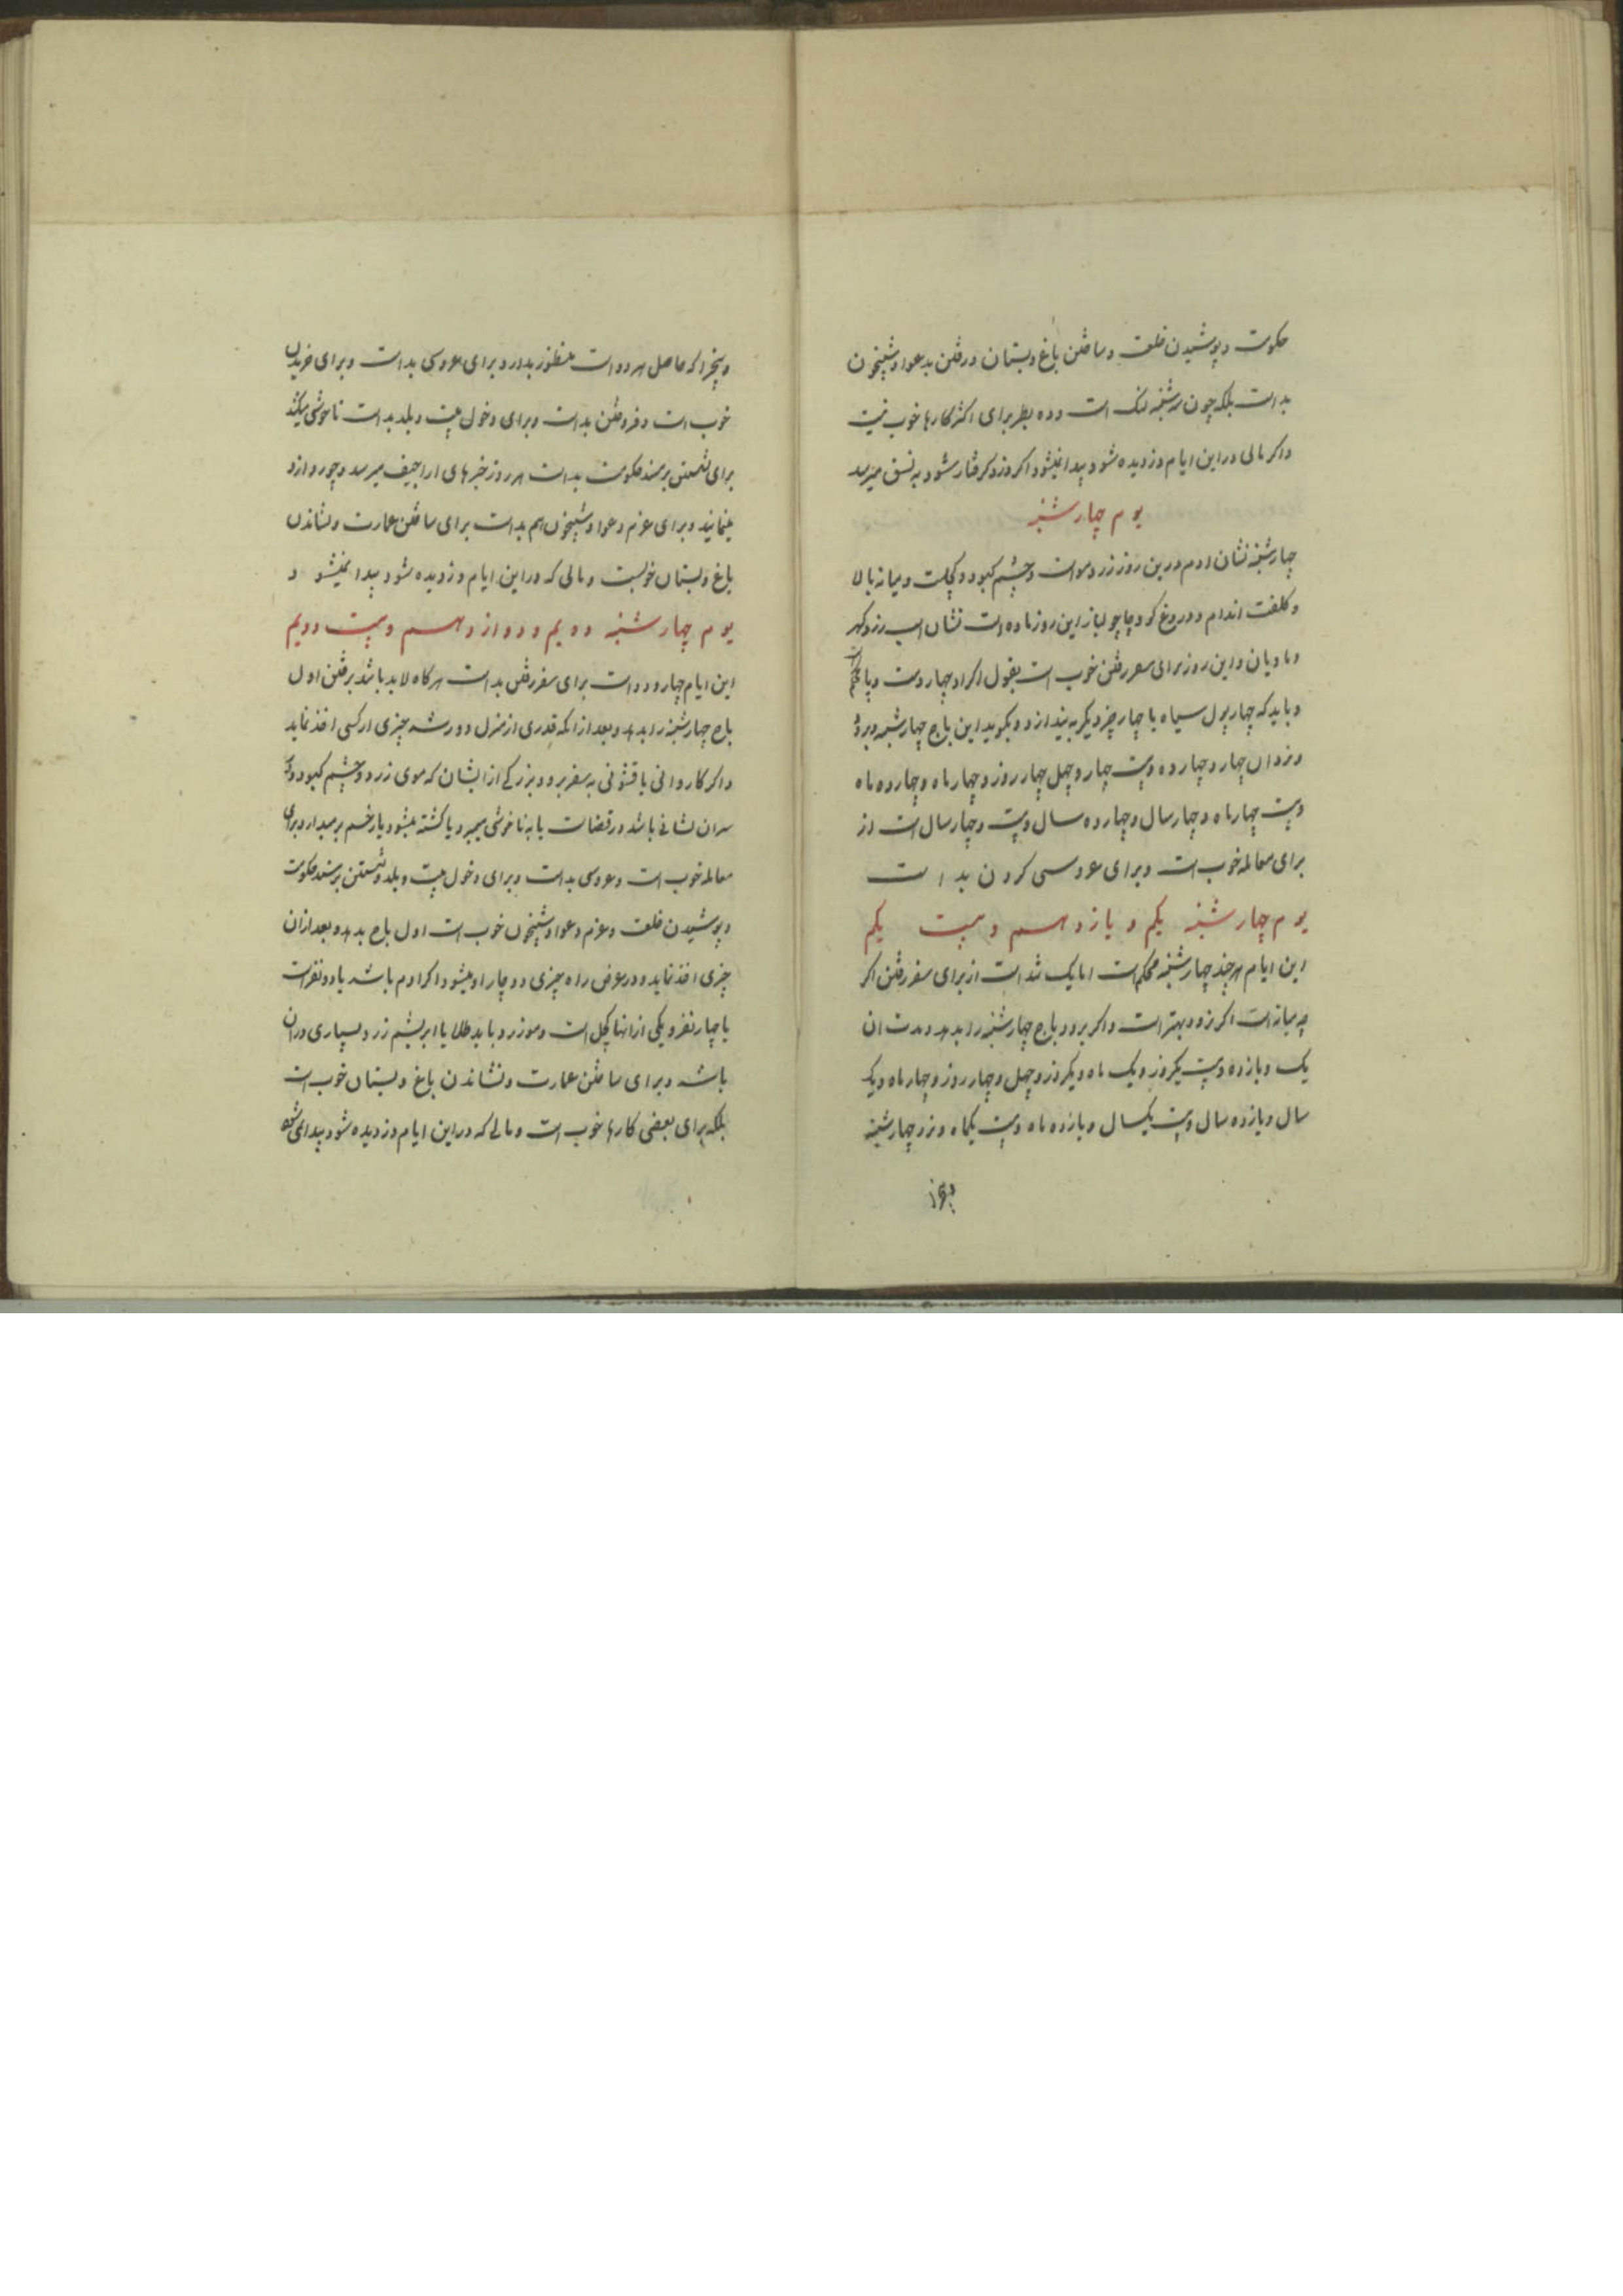 حکومت و پوشیدن خلعت و ساختن باغ و بستان و رفتن بدعوا و شبیخون
بد است بلکه چون سه شنبه لنک است و ده بطر برای اکثر کارها خوب نیست
و اکر مالی در این ایام دزدیده شود پیدا نمیشود اکر دزد کرفتار شود به نسق میرسد
یوم چهار شنبه
چهارشنبه نشان ادم درین روز زرد مو است و چشم کبود و کچلت و میانه بالا
و کلفت اندام و دروغ کو و چاچولباز این روز ماده است نشان اسب زرد و کهر
و مادیان و این روز برای سفر رفتن خوب است بقول اکراد چهار دست و پا
و باید که چهار پول سیاه یا چهار چیز دیکر به بیندازد و بکوید این باج چهارشنبه و برود
و چهار و چهارده و بیست چهار و چهل چهار روز و چهار ماه و چهارده ماه
و بیست چهار ماه و چهار سال و چهارده سال و بیست و چهار سال است از
برای معامله خوب است و برای عروسی کردن بد است
یوم چهار شنبه یکم و یازدهم و بیست یکم
این ایام هر چند چهارشنبه محکم است اما یک شد است از برای سفر رفتن اکر
چه میانه است اکر نرود بهتر است و اکر برود باج چهارشنبه را بدهد و مدت ان
یک و یازده و بیست یکروز و یک ماه و یکروز و چهل و چهار روز و چهار ماه و یک
سال و یازده سال و بیست یکسال و یازده ماه و بیست یکماه و نزد چهارشنبه
و پنجرا که حاصل هر دو است منظور بدارد برای عروسی بد است و برای خریدن
خوب است و فروختن بد است و برای دخول بیت و بلد بد است ناخوشی میکشد
برای نشستن بر مسند حکومت بد است هر روز خبرهای اراجیف میرسد و چور و ازو
مینمایند و برای عزم دعوا و شبیخون هم بد است برای ساختن عمارت و نشاندن
باغ و بستان خوبست و مالی که در این ایام دزدیده شود پیدا نمیشود
یوم چهار شنبه دویم و دوازدهم و بیست دویم
این ایام چهار و دو است برای سفر رفتن بد است هر کاه لابد باشد برفتن اول
باج چهارشنبه را بدهد و بعد از انکه قدری از منزل دور شد چیزی از کسی اخذ نماید
و اکر کاروانی یا قشونی به سفر برود بزرکی از ایشان که موی زرد و چشم کبود
سران نشانی باشد در قضاست یا به ناخوشی میمیرد یا کشته میشود یا زخم برمیدارد برای
معامله خوب است و عروسی بد است و برای دخول بیت و بلد و نشستن بر مسند حکومت
و پوشیدن خلعت و عزم دعوا و شبیخون خوب است اول باج بدهد و بعد ازان
چیزی اخذ نماید و در عرض راه چیزی دوچار او میشود اکر ادم باشد یا دو نفر است
یا چهار نفر و یکی از انها کچل است و مو زرد و باید طلا یا ابریشم زرد بسیاری دران
باشد و برای ساختن عمارت و نشاندن باغ و بستان خوب است
بلکه برای بعضی کارها خوب است و مالی که در این ایام دزدیده شود پیدا نمی شود